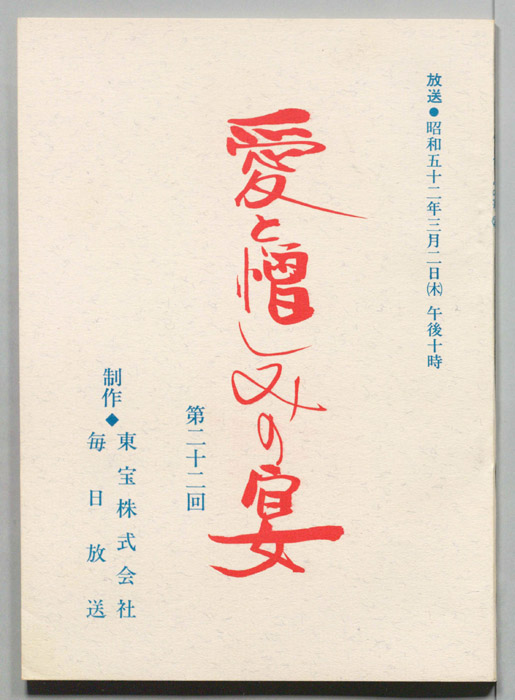 放送●昭和五十二年三月二日㈭ 午後十時
愛と憎しみの宴
第二十二回
制作◆東宝株式会社
毎日放送